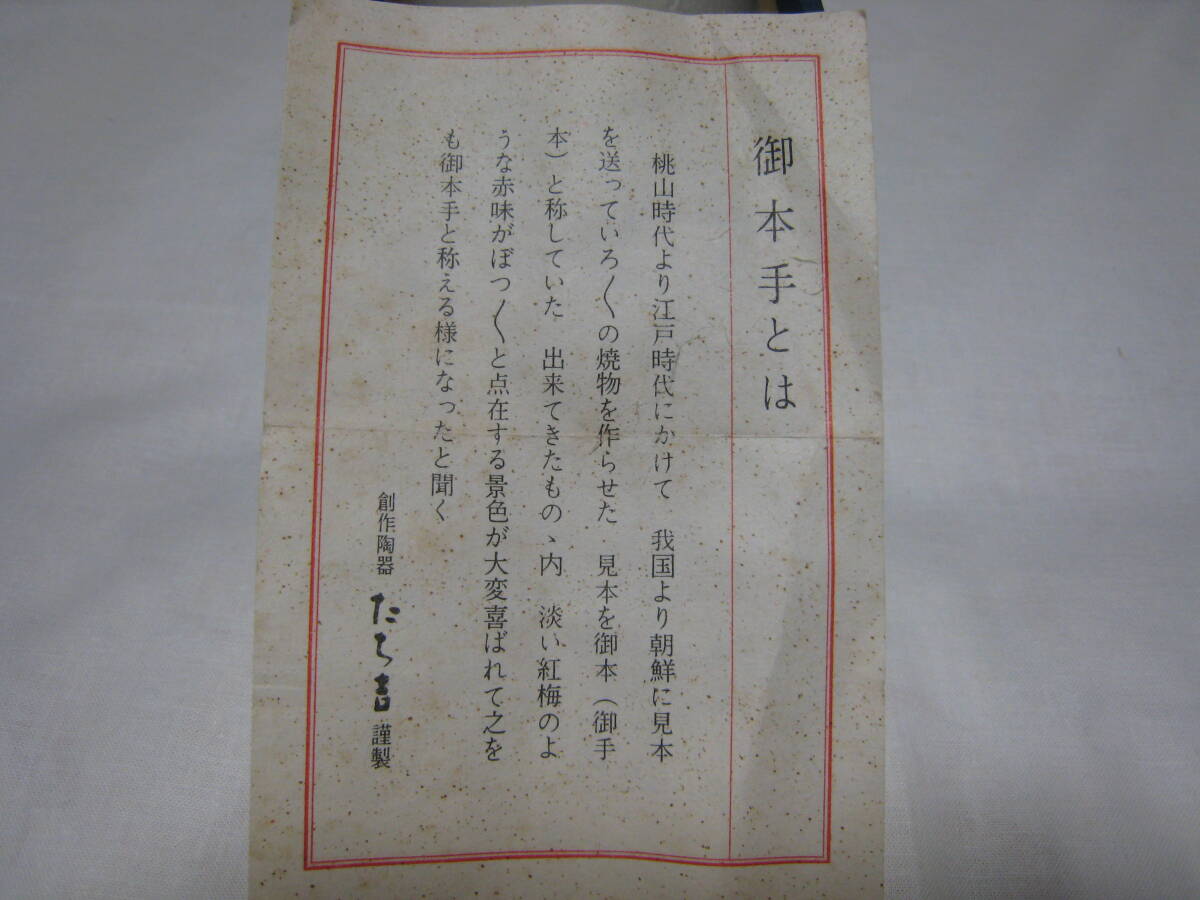 御本手とは
桃山時代より江戸時代にかけて、我国より朝鮮に見本
を送っていろ〱の焼物を作らせた 見本を御本（御手
本）と称していた 出来てきたものゝ内 淡い紅梅のよ
うな赤味がぼつ〱と点在する景色が大変喜ばれて之を
も御本手と称える様になったと聞く
創作陶器 たち吉 謹製